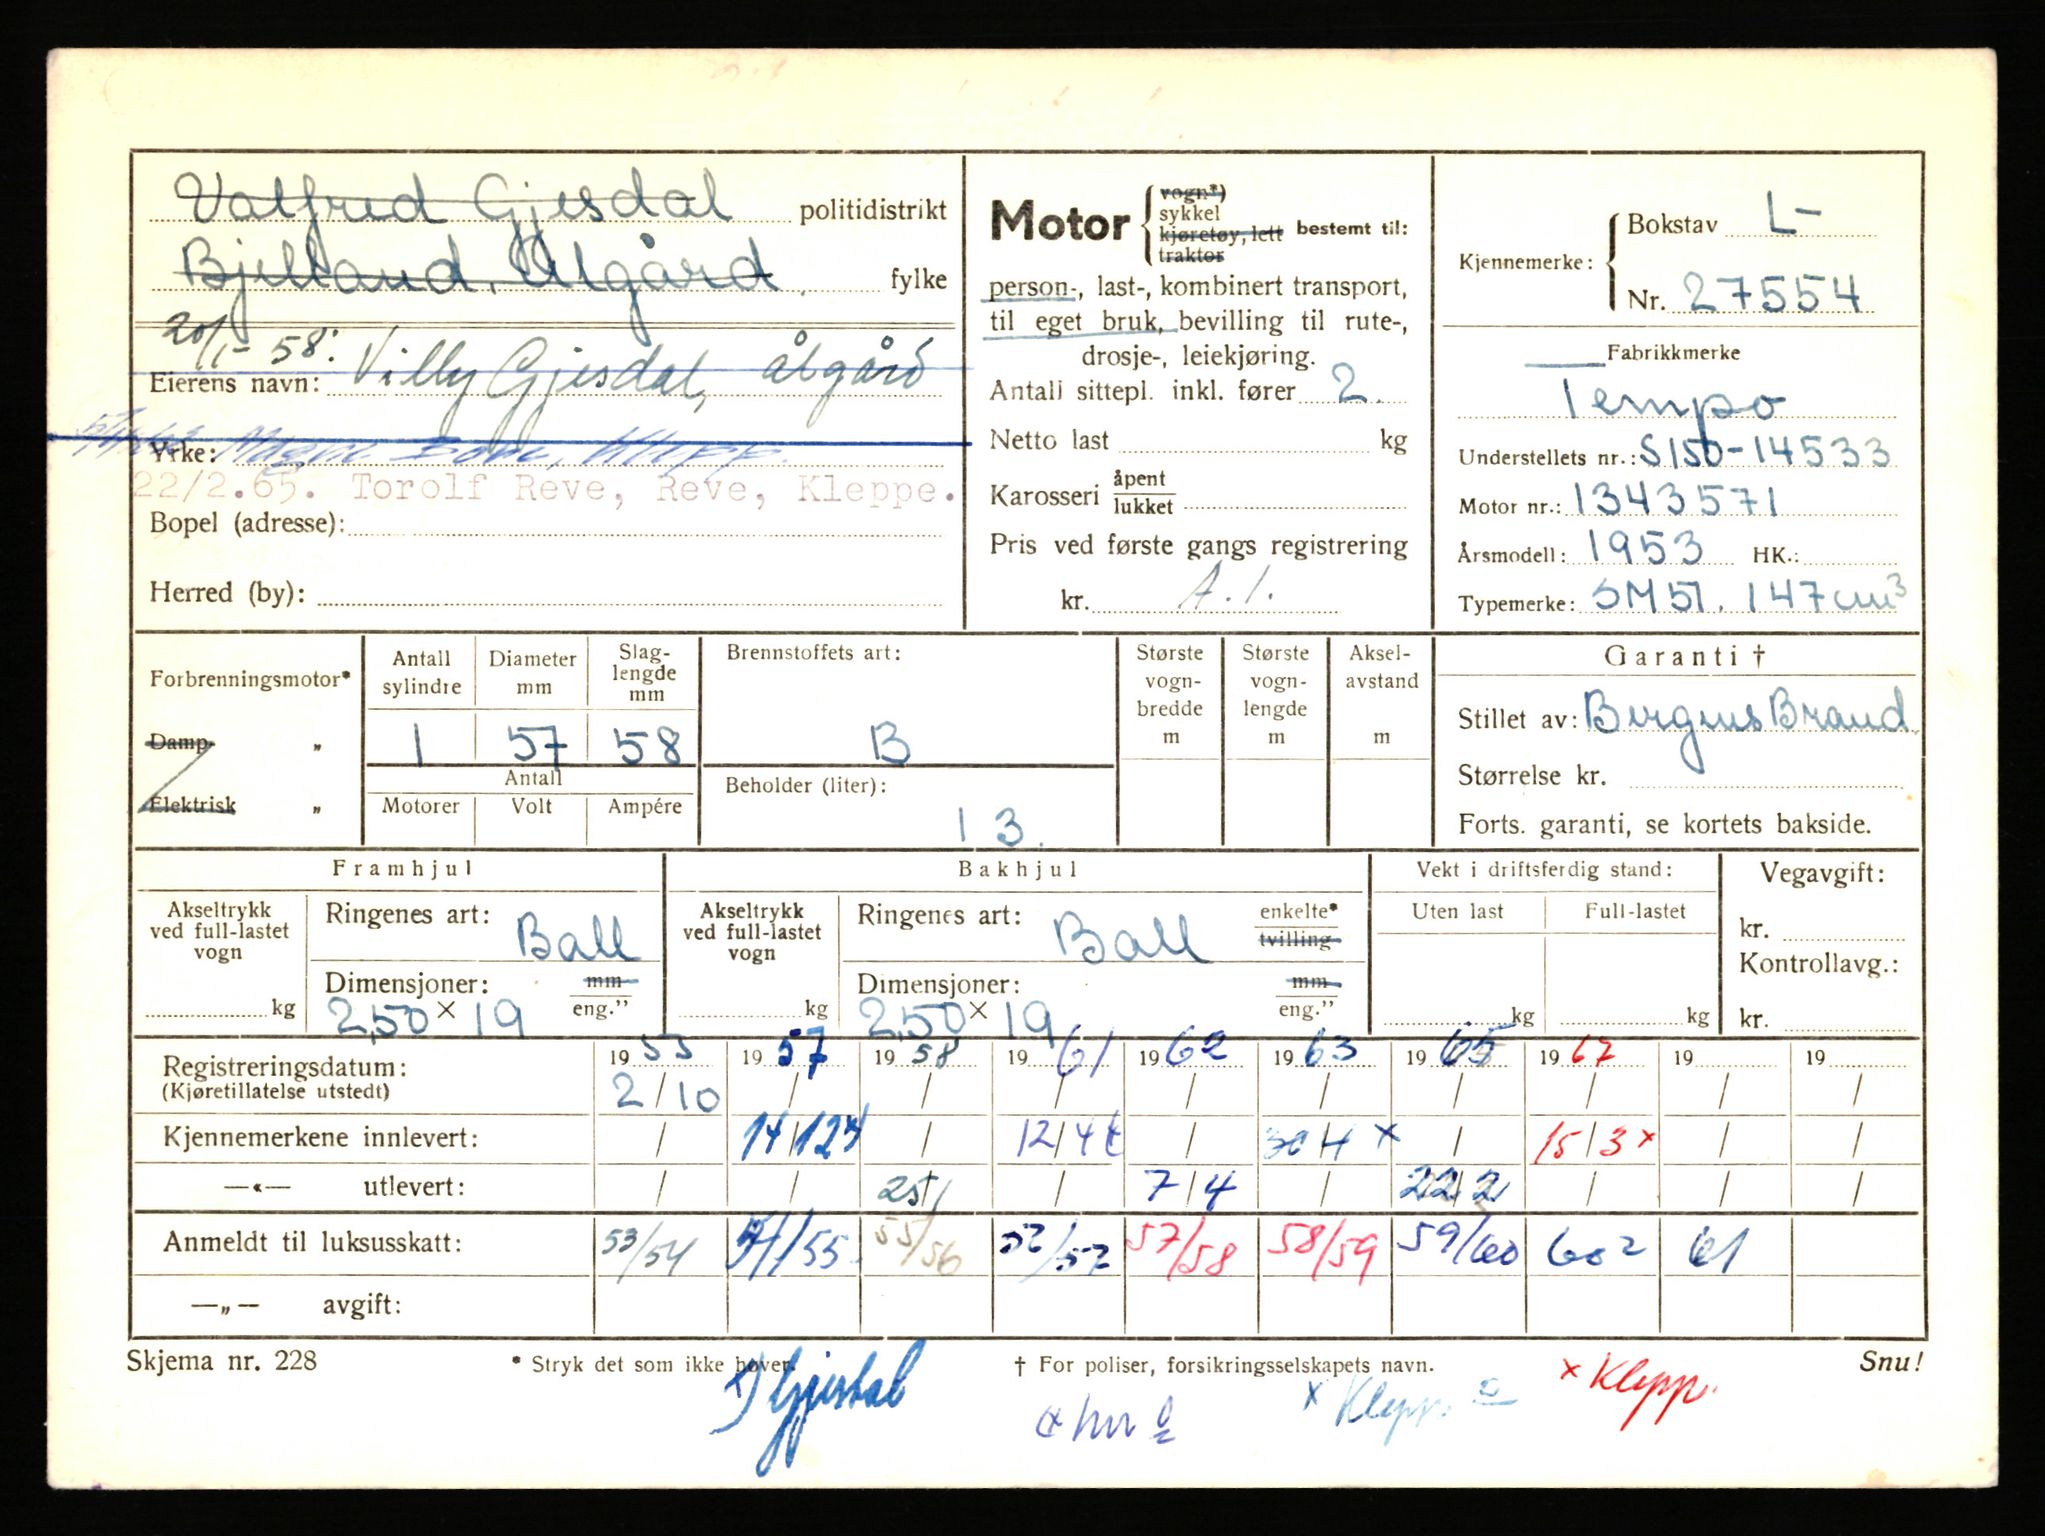 Valfred Gjesdal politidistrikt
Bjelland, Ålgård. fylke
20/1-58: Villy Gjesdal, ålgård
Eierens navn:
Yrke: Magne Bore, Klepp.
22/2.65. Torolf Reve, Reve, Kleppe.
Bopel (adresse):
Herred (by):
Motor { vogn*) sykkel kjøretøy, lett traktor bestemt til:
person-, last-, kombinert transport,
til eget bruk, bevilling til rute-,
drosje-, leiekjøring.
Antall sittepl. inkl. fører 2.
Netto last kg
Karosseri åpent lukket
Pris ved første gangs registrering
kr. A.1.
Kjennemerke: { Bokstav L-
Nr. 27554
Fabrikkmerke
Tempo
Understellets nr.: S150-14533
Motor nr.: 1343571
Årsmodell: 1953 HK.:
Typemerke: SM51. 147 cm³
Forbrenningsmotor*
Damp „
Elektrisk „
Antall sylindre Diameter mm Slag-lengde mm
1 57 58
Antall
Motorer Volt Ampére
Brennstoffets art:
B
Beholder (liter):
13.
Største vogn-bredde m Største vogn-lengde m Aksel-avstand m
Garanti †
Stillet av: Bergens Brand.
Størrelse kr.
Forts. garanti, se kortets bakside.
Framhjul
Akseltrykk ved full-lastet vogn kg
Ringenes art: Ball
Dimensjoner: mm eng."
2,50 × 19
Bakhjul
Akseltrykk ved full-lastet vogn kg
Ringenes art: Ball enkelte* tvilling
Dimensjoner: mm eng."
2,50 × 19
Vekt i driftsferdig stand:
Uten last Full-lastet
kg kg
Vegavgift:
kr.
Kontrollavg.:
kr.
Registreringsdatum: 1953 1957 1958 1961 1962 1963 1965 1967 19 19
(Kjøretillatelse utstedt) 2/10 / / / / / / / / /
Kjennemerkene innlevert: / 14/12 / 12/4 / 30/4 × / 15/3 × / /
—«— utlevert: / / 25/1 / 7/4 / 22/2 / / /
Anmeldt til luksusskatt: 53/54 54/55 55/56 57/58 58/59 59/60 602 61
—„— avgift:
Skjema nr. 228 * Stryk det som ikke høver. † For poliser, forsikringsselskapets navn. Snu!
Gjesdal × Klepp. × Klepp.